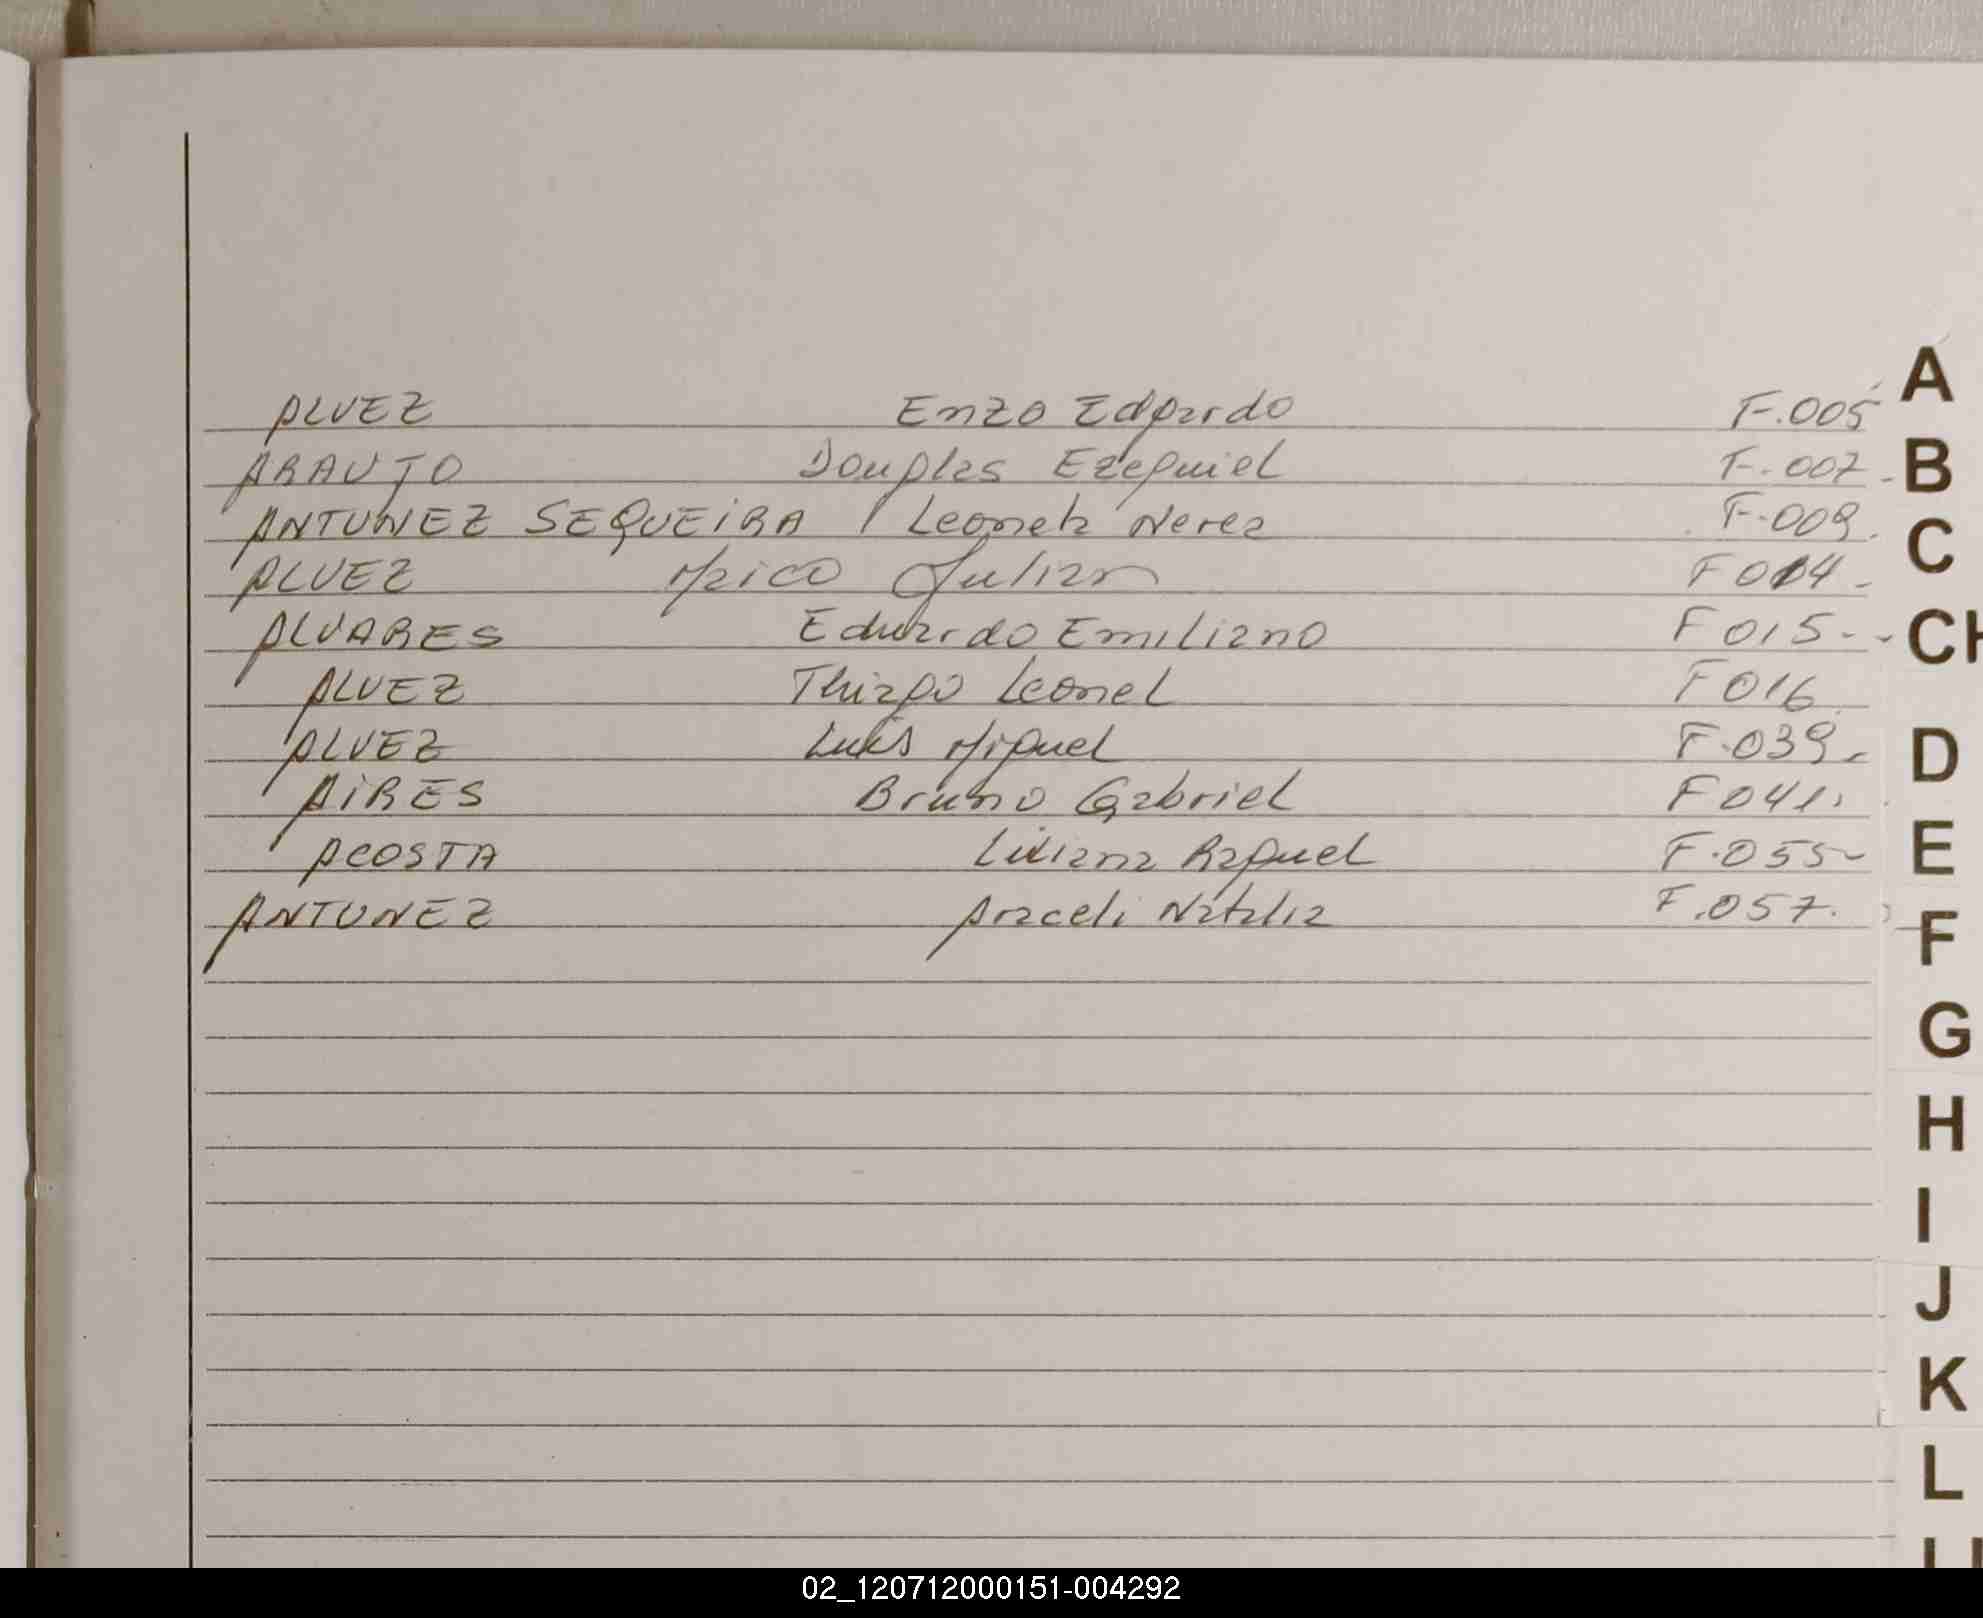 ALVEZ Enzo Edgardo F.005
ARAUJO Douglas Ezequiel F.007
ANTUNEZ SEQUEIRA / Leonela Nerea F.009
ALVEZ Maico Julian F 014
ALVARES Eduardo Emiliano F 015
ALVEZ Thiago Leonel F 016
ALVEZ Luis Miguel F.039
AIRES Bruno Gabriel F 041
ACOSTA Liliana Raquel F.055
ANTUNEZ Araceli Natalia F.057.
A
B
C
CH
D
E
F
G
H
I
J
K
L
02_120712000151-004292